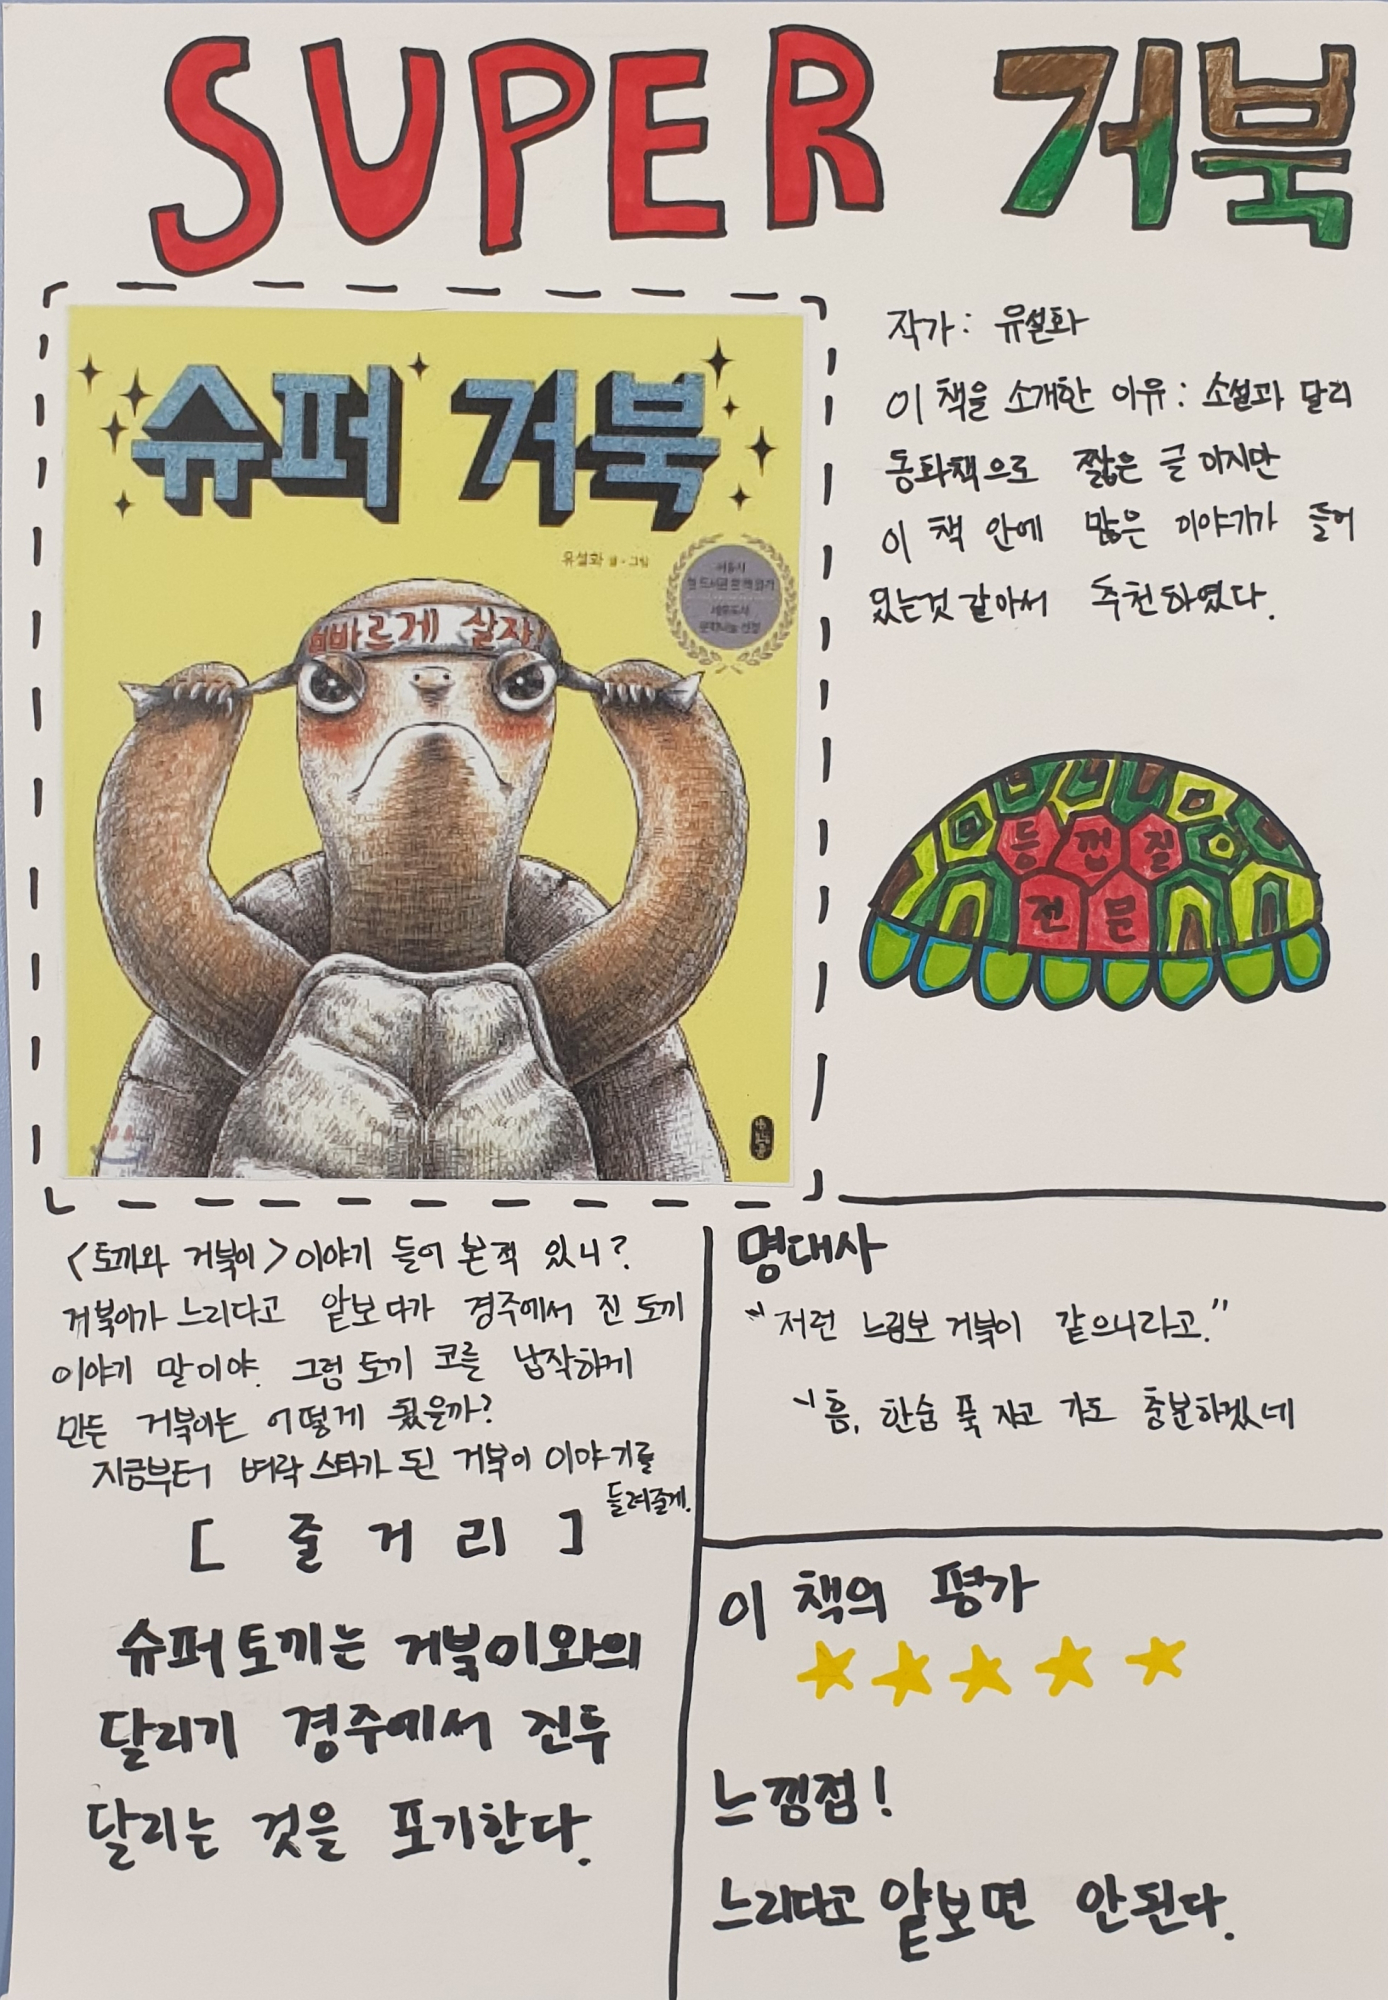 SUPER 거북
슈퍼 거북
유설화 글·그림
빠르게 살자!
작가: 유설화
이 책을 소개한 이유: 소설과 달리
동화책으로 짧은 글 이지만
이 책 안에 많은 이야기가 들어
있는것 같아서 추천하였다.
등껍질
전문
<토끼와 거북이> 이야기 들어 본 적 있니?
거북이가 느리다고 얕보다가 경주에서 진 토끼
이야기 말이야. 그럼 토끼 코를 납작하게
만든 거북이는 어떻게 됐을까?
지금부터 벼락 스타가 된 거북이 이야기를
들려줄게.
[ 줄 거 리 ]
슈퍼토끼는 거북이와의
달리기 경주에서 진후
달리는 것을 포기한다.
명대사
"저런 느림보 거북이 같으니라고."
"흠, 한숨 푹 자고 가도 충분하겠네
이 책의 평가
느낌점!
느리다고 얕보면 안된다.